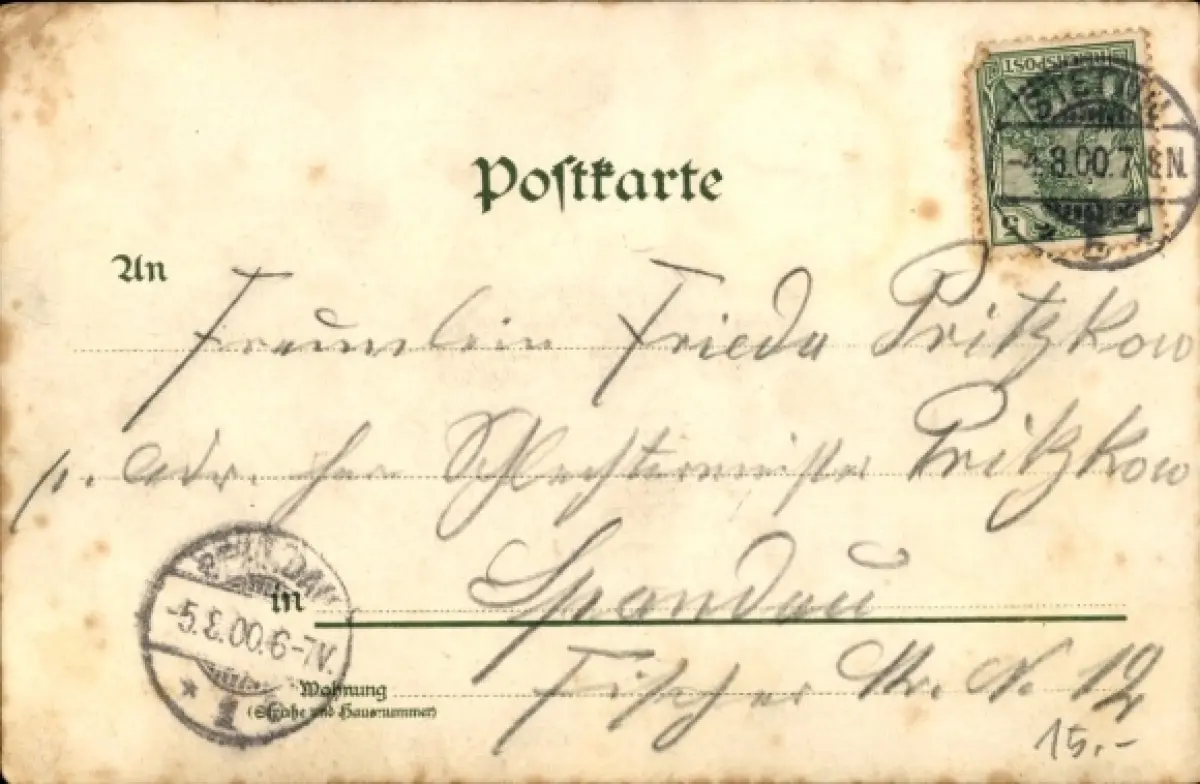 REICHSPOST
5 5
-4.8.00.7-8N.
Postkarte
An
Fräulein Frieda Pritzkow
p. Adr. Herr Schlächtermeister Pritzkow
SPANDAU
-5.8.00.6-7V.
* 1
in Spandau
Wohnung
(Straße und Hausnummer)
Fischer Str. N. 19
15.-